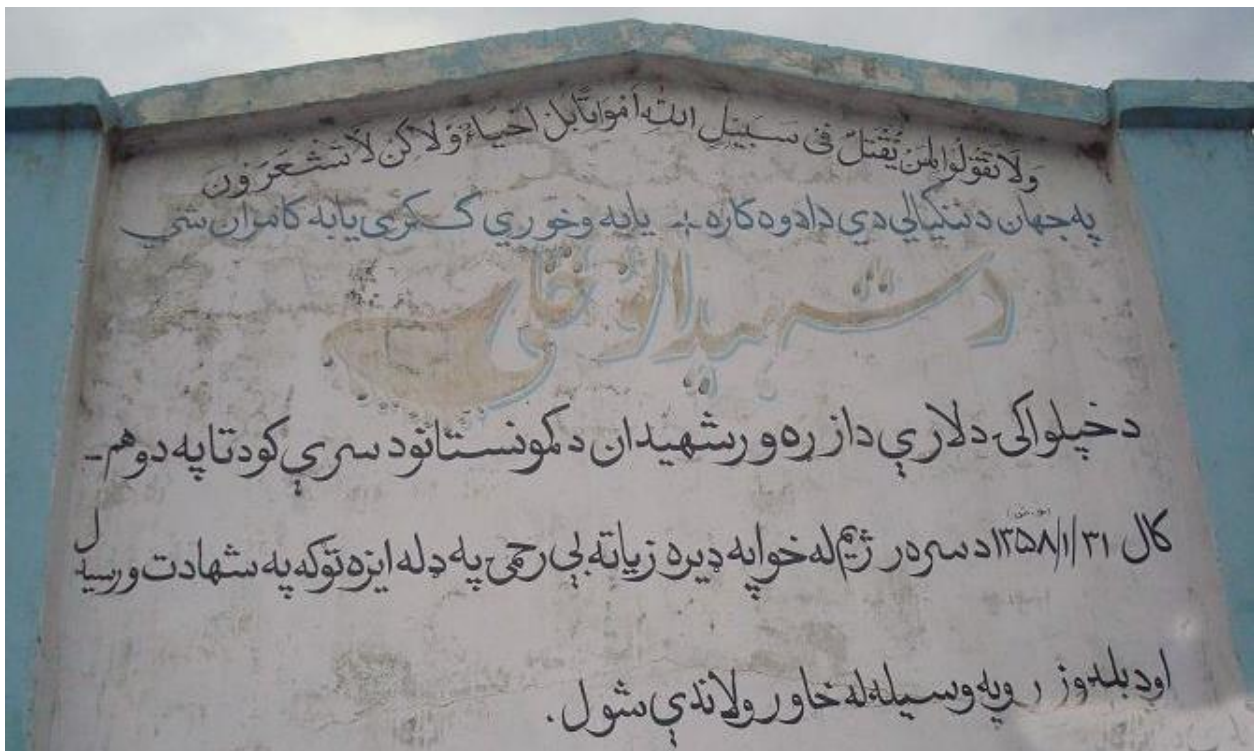 وَلَا تَقُولُوا لِمَنْ يُقْتَلُ فِى سَبِيْلِ اللهِ اَمْوَاتًا بَلْ اَحْيَاءٌ وَّلَاكِنْ لَّاتَشْعُرُوْنَ
په جهان د ننګیالي دي دا دوه کاره :- یا به وخوري ککرۍ یا به کامران شي
د شهیدانو څلی
د خپلواکۍ د لارې دا زړه ور شهیدان د کمونستانو د سرې کودتا په دوهم -
کال ۱۳۵۸/۱/۳۱ د سره رژیم له خوا په ډیره زیاته بې رحمۍ په ډله ایزه توګه په شهادت ورسیدل
او د بلدوزر په وسیله له خاورو لاندې شول.